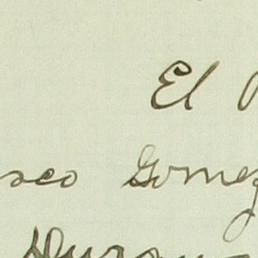 El
sco Gomez
Duran